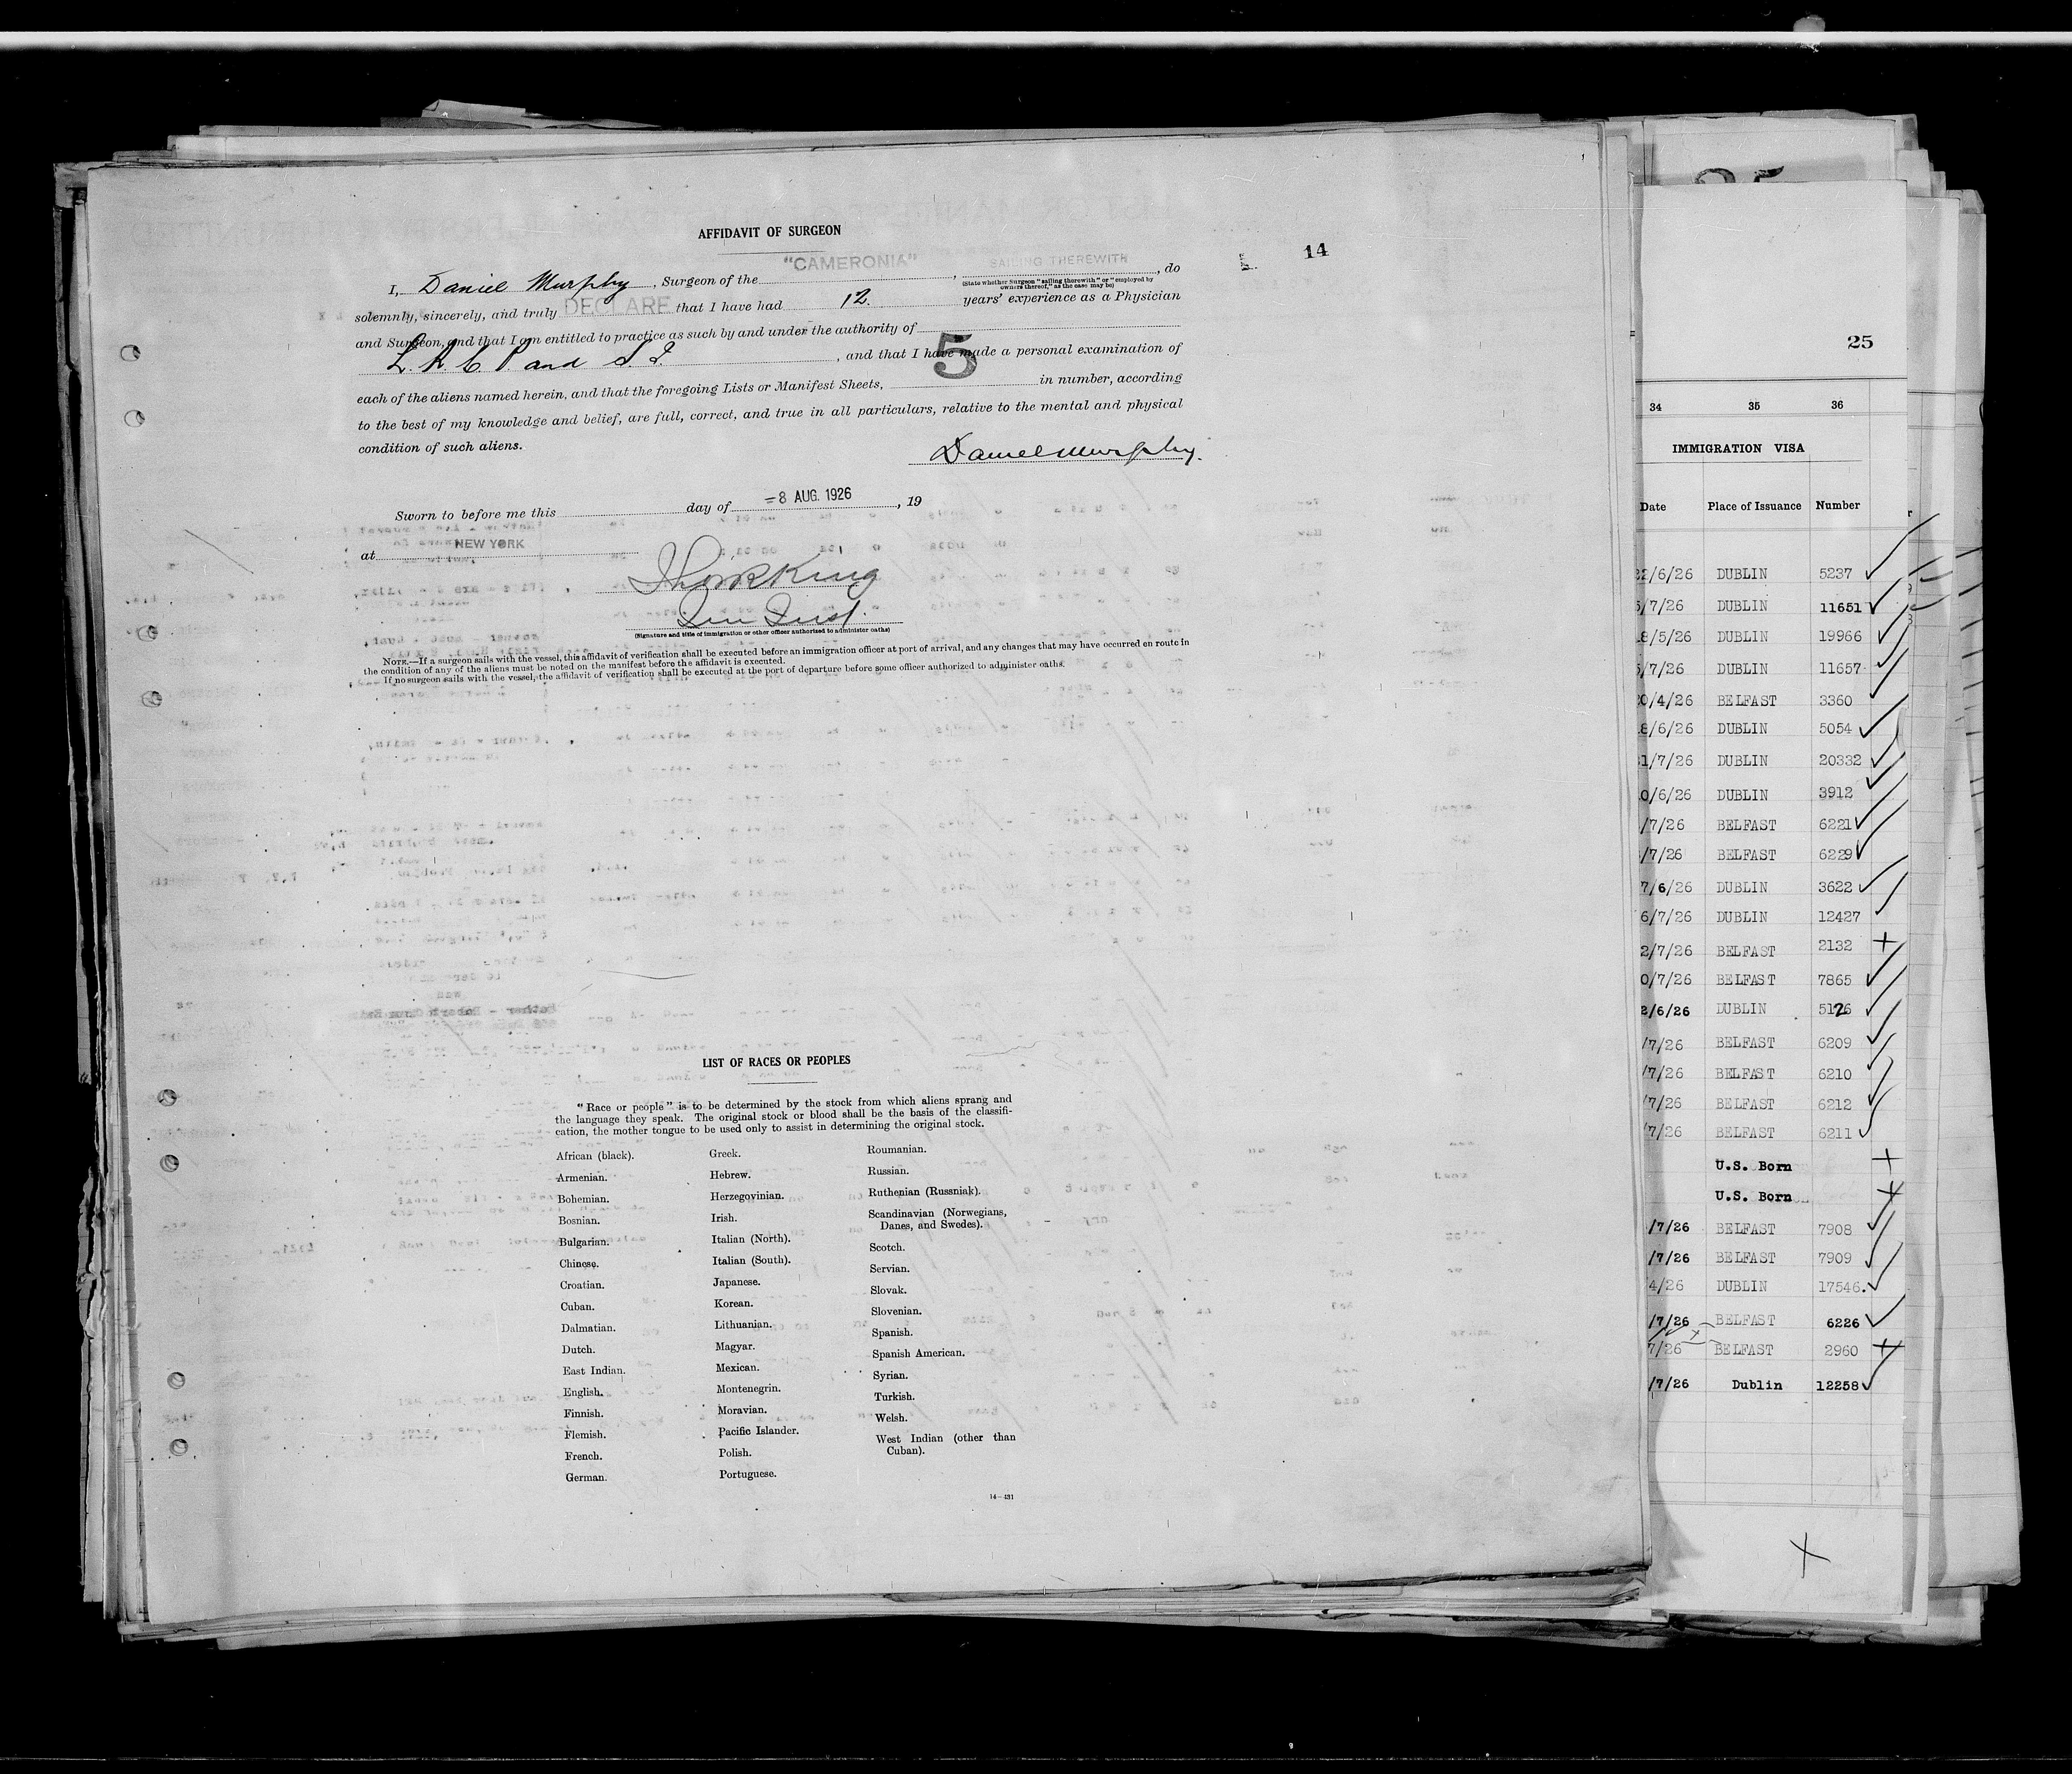 AFFIDAVIT OF SURGEON
14
I, Daniel Murphy, Surgeon of the "CAMERONIA", SAILING THEREWITH, do
(State whether Surgeon "sailing therewith" or "employed by
owners thereof," as the case may be)
solemnly, sincerely, and truly DECLARE that I have had 12. years' experience as a Physician
and Surgeon, and that I am entitled to practice as such by and under the authority of
L. R. C. P and S. I., and that I have made a personal examination of
each of the aliens named herein, and that the foregoing Lists or Manifest Sheets, 5 in number, according
to the best of my knowledge and belief, are full, correct, and true in all particulars, relative to the mental and physical
condition of such aliens.
Daniel Murphy.
Sworn to before me this day of -8 AUG. 1926, 19
at NEW YORK
King
(Signature and title of immigration or other officer authorized to administer oaths)
NOTE.—If a surgeon sails with the vessel, this affidavit of verification shall be executed before an immigration officer at port of arrival, and any changes that may have occurred en route in
the condition of any of the aliens must be noted on the manifest before the affidavit is executed.
If no surgeon sails with the vessel, the affidavit of verification shall be executed at the port of departure before some officer authorized to administer oaths.
LIST OF RACES OR PEOPLES
"Race or people" is to be determined by the stock from which aliens sprang and
the language they speak. The original stock or blood shall be the basis of the classifi-
cation, the mother tongue to be used only to assist in determining the original stock.
African (black).
Armenian.
Bohemian.
Bosnian.
Bulgarian.
Chinese.
Croatian.
Cuban.
Dalmatian.
Dutch.
East Indian.
English.
Finnish.
Flemish.
French.
German.
Greek.
Hebrew.
Herzegovinian.
Irish.
Italian (North).
Italian (South).
Japanese.
Korean.
Lithuanian.
Magyar.
Mexican.
Montenegrin.
Moravian.
Pacific Islander.
Polish.
Portuguese.
Roumanian.
Russian.
Ruthenian (Russniak).
Scandinavian (Norwegians,
Danes, and Swedes).
Scotch.
Servian.
Slovak.
Slovenian.
Spanish.
Spanish American.
Syrian.
Turkish.
Welsh.
West Indian (other than
Cuban).
14—431
25
34 35 36
IMMIGRATION VISA
Date Place of Issuance Number
22/6/26 DUBLIN 5237
5/7/26 DUBLIN 11651
8/5/26 DUBLIN 19966
5/7/26 DUBLIN 11657
20/4/26 BELFAST 3360
8/6/26 DUBLIN 5054
1/7/26 DUBLIN 20332
0/6/26 DUBLIN 3912
/7/26 BELFAST 6221
/7/26 BELFAST 6229
7/6/26 DUBLIN 3622
6/7/26 DUBLIN 12427
2/7/26 BELFAST 2132
0/7/26 BELFAST 7865
2/6/26 DUBLIN 5126
/7/26 BELFAST 6209
/7/26 BELFAST 6210
/7/26 BELFAST 6212
7/26 BELFAST 6211
U.S. Born
U.S. Born
/7/26 BELFAST 7908
/7/26 BELFAST 7909
4/26 DUBLIN 17546.
/7/26 BELFAST 6226
7/26 BELFAST 2960
/7/26 Dublin 12258